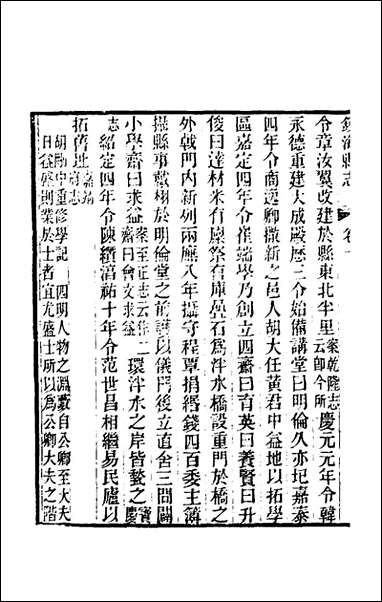 鎮海縣志 卷十
令章汝翼改建於縣東北半里案乾隆志云卽今所慶元元年令韓
永德重建大成殿歷三令始備講堂曰明倫久亦圮嘉泰
四年令商逸卿撤新之邑人胡大任黃君中益地以拓學
區嘉定四年令崔端學乃創立四齋曰育英曰養賢曰升
俊曰達材米有廩祭有庫壘石爲泮水橋設重門於橋之
外戟門內新列兩廡八年攝守程覃捐緡錢四百委主簿
攝縣事戴栩於明倫堂之前護以儀門後立直舍三間闢
小學齋曰求益案至正志云作二齋曰會文求益環泮水之岸皆甃之寶慶
志紹定四年令陳纘滈祐十年令范世昌相繼易民廬以
拓舊址嘉靖府志
胡剛中重修學記 四明人物之淵藪自公卿至大夫
日益盛則業於士者宜尤盛士所以爲公卿大夫之階